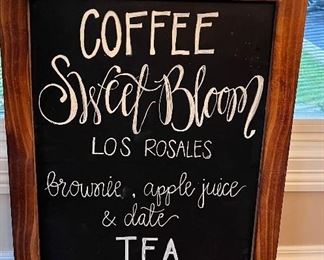 COFFEE
Sweet Bloom
LOS ROSALES
brownie, apple juice
& date
TEA